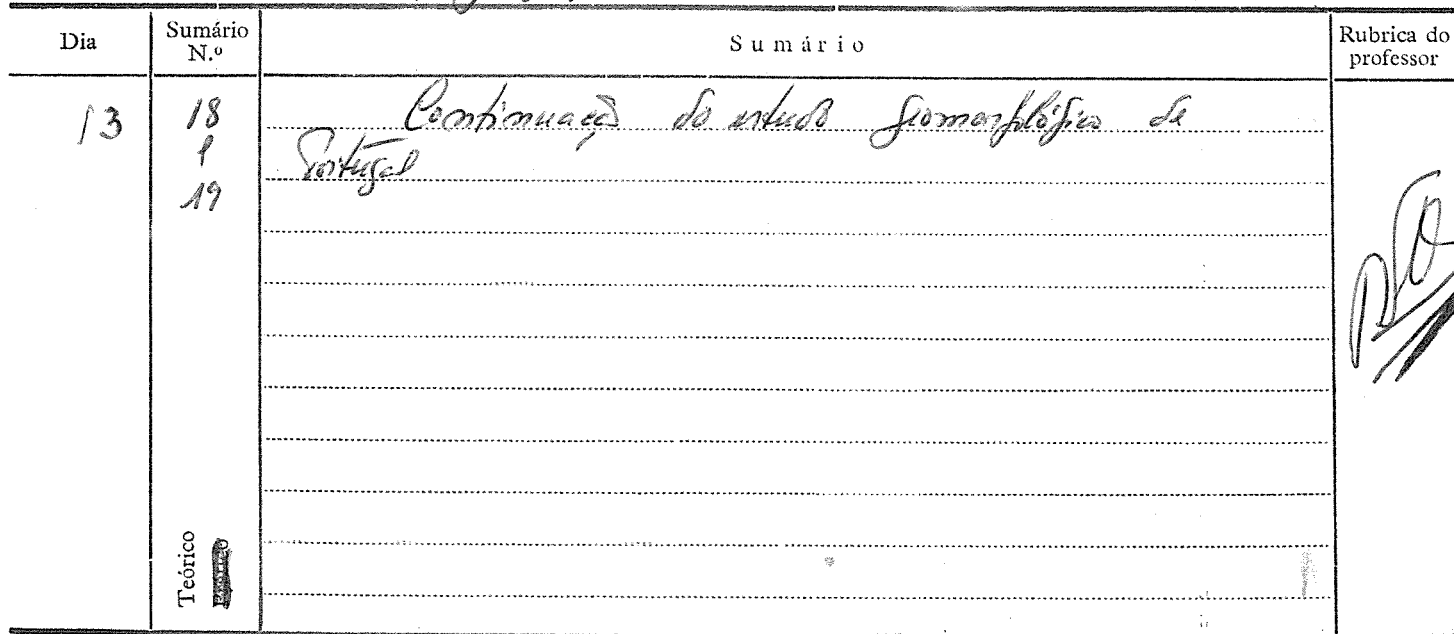 Dia
Sumário
N.º
Sumário
Rubrica do
professor
13
18
e
19
Continuação do estudo geomorfológico de
Portugal
Teórico